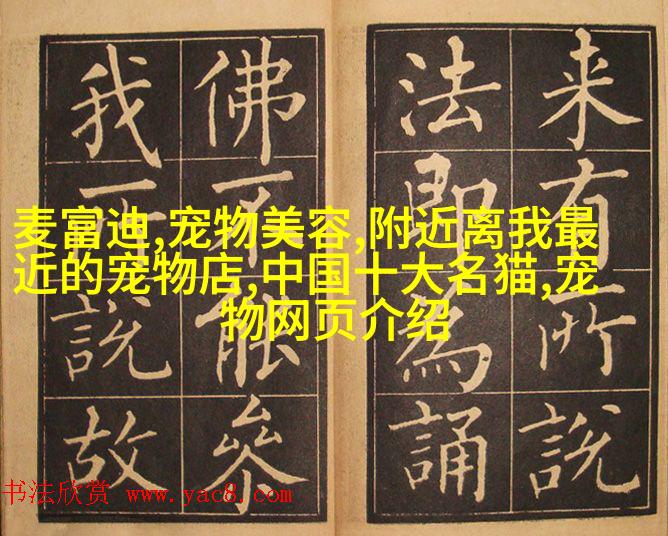 来有所說
法即為誦
佛不能叅
我所說故
麦富迪,宠物美容,附近离我最
近的宠物店,中国十大名猫,宠
物网页介绍
书法欣赏 www.yac8.com